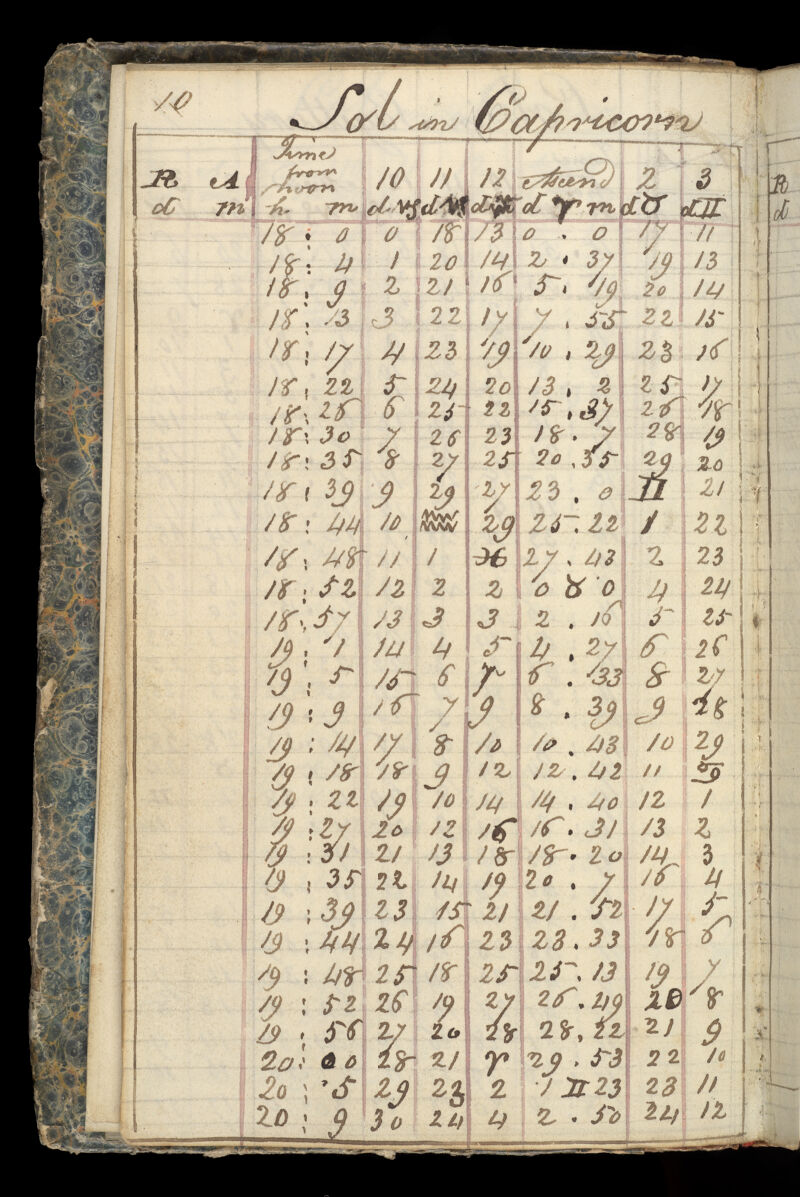 10
Sol in Capricorn
Time
from
R A noon 10 11 12 Ascend 2 3
d m h m d ♑ d ♑ d ♒ d ♈ m d ♉ d ♊
18 : 0 0 18 13 0 . 0 17 11
18 : 4 1 20 14 2 . 37 19 13
18 : 9 2 21 16 5 . 19 20 14
18 : 13 3 22 17 7 . 55 22 15
18 : 17 4 23 19 10 . 29 23 16
18 : 22 5 24 20 13 . 2 25 17
18 : 26 6 25 22 15 . 37 26 18
18 : 30 7 26 23 18 . 7 28 19
18 : 35 8 27 25 20 . 35 29 20
18 : 39 9 29 27 23 . 0 ♊ 21
18 : 44 10 ♒ 29 25 . 22 1 22
18 : 48 11 1 ♓ 27 . 43 2 23
18 : 52 12 2 2 0 ♉ 0 4 24
18 : 57 13 3 3 2 . 16 5 25
19 : 1 14 4 5 4 . 27 6 26
19 : 5 15 6 ♈ 6 . 33 8 27
19 : 9 16 7 9 8 . 39 9 28
19 : 14 17 8 10 10 . 43 10 29
19 : 18 18 9 12 12 . 42 11 ♋
19 : 22 19 10 14 14 . 40 12 1
19 : 27 20 12 16 16 . 31 13 2
19 : 31 21 13 18 18 . 20 14 3
19 : 35 22 14 19 20 . 7 16 4
19 : 39 23 15 21 21 . 52 17 5
19 : 44 24 16 23 23 . 33 18 6
19 : 48 25 18 25 25 . 13 19 7
19 : 52 26 19 27 26 . 49 20 8
19 : 56 27 20 28 28 . 22 21 9
20 : 00 28 21 ♈ 29 . 53 22 10
20 : 5 29 23 2 1 ♊ 23 23 11
20 : 9 30 24 4 2 . 50 24 12
R
d